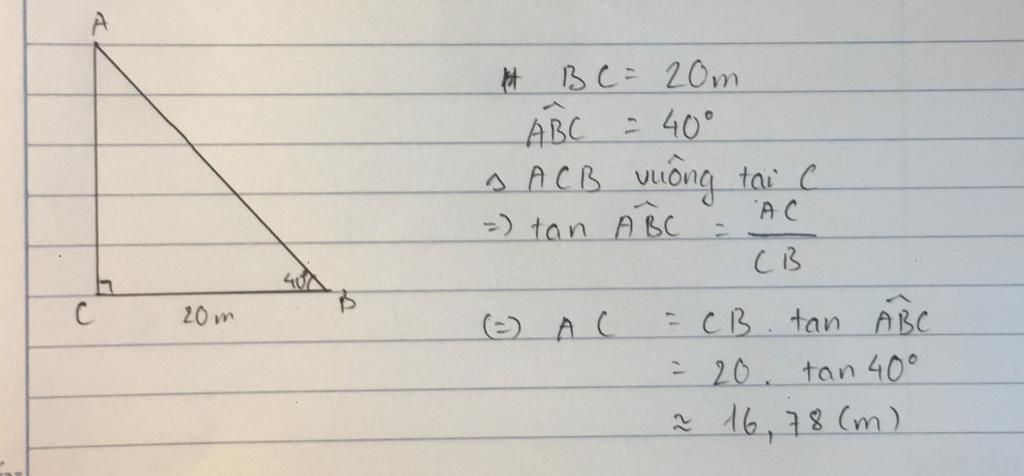 A
C
20m
40°
B
BC = 20m
ABC = 40°
△ ACB vuông tại C
=) tan ABC = AC / CB
(=) AC = CB . tan ABC
= 20 . tan 40°
≈ 16,78 (m)